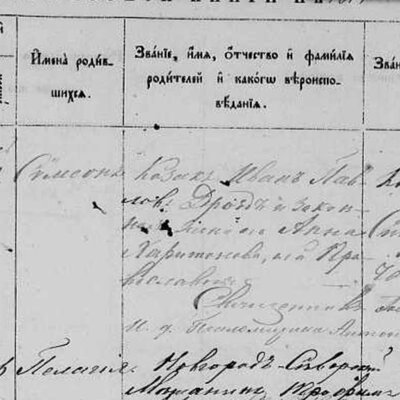 Имена роди́в-
шихся.
Зва́нїе, и́мя, ѻ҆́тчество и҆ фами́лїя
роди́телей и҆ како́гѡ вѣроиспо-
вѣ́данїя.
Зва́н
Симеонъ
Козакъ Иванъ Пав-
ловъ Дроздъ и закон-
ная жена его Анна
Харитонова, оба Пра-
вославные
Священникъ
Пелагія
Новгородъ-Сѣверскій
Мѣщанинъ Трофимъ